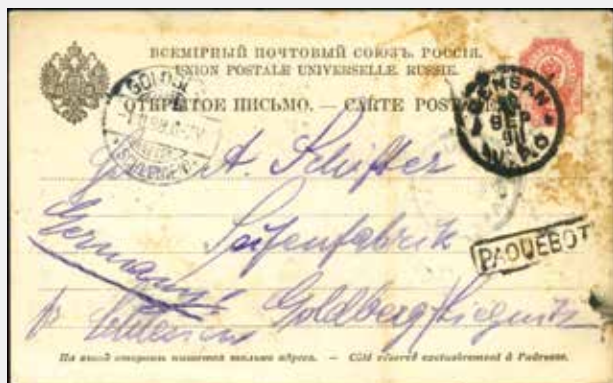 ВСЕМІРНЫЙ ПОЧТОВЫЙ СОЮЗЪ. РОССІЯ.
UNION POSTALE UNIVERSELLE. RUSSIE.
ОТКРЫТОЕ ПИСЬМО. — CARTE POSTALE
GENSAN
SEP
PAQUEBOT
A. Schifter
Seifenfabrik
Germany!
Goldberg/Liegnitz
Schlesien
На этой сторонѣ пишется только адресъ. — Côté réservé exclusivement à l'adresse.